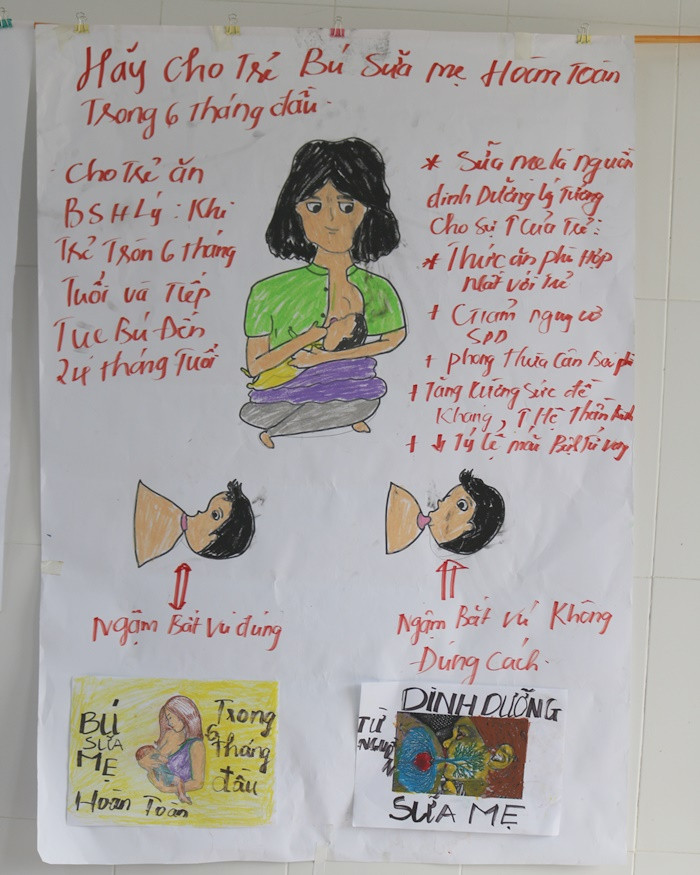 Hãy Cho Trẻ Bú Sữa mẹ Hoàn Toàn
Trong 6 tháng đầu.
Cho Trẻ ăn
BSHLý : Khi
Trẻ Tròn 6 tháng
Tuổi và Tiếp
Tục Bú Đến
24 tháng Tuổi
* Sữa mẹ là nguồn
dinh Dưỡng lý Tưởng
Cho Sự ↑ Của Trẻ :
* Thức ăn phù Hợp
Nhất với Trẻ
+ Giảm nguy cơ
SDD
+ phòng Thừa Cân Béo phì
+ Tăng Cường Sức đề
Kháng, ↑ Hệ Thần Kinh
+ ↓ Tỷ lệ mắc Bệnh Tử vong
Ngậm Bắt Vú đúng
Ngậm Bắt vú Không
Đúng Cách.
BÚ
SỮA
MẸ
Hoàn Toàn
Trong
6
tháng
đầu
DINH DƯỠNG
TỪ
SỮA MẸ